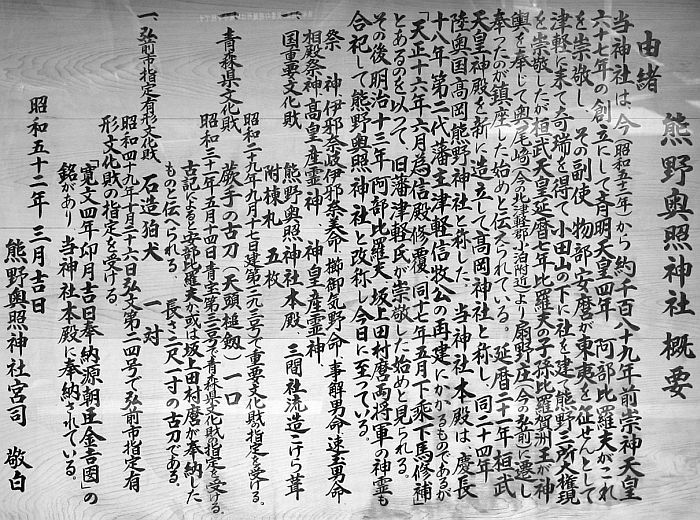 熊野奥照神社 概要
由緒
当神社は、今(昭和五二年)から約千百八十九年前崇神天皇
六十七年の創立にして斉明天皇四年 阿部比羅夫がこれ
を崇敬し、その副使 物部安麿が東夷を征せんとして
津軽に来て奇瑞を得て小田山の下に社を建て熊野三所大権現
を崇敬したが桓武天皇延暦七年比羅夫の子孫比羅賀洲王が神
輿を奉じて奥の尾崎(今の北津軽郡小泊附近)より扇野庄(今の弘前)に遷し
奉ったのが鎮座した始めと伝えられている。延暦二十一年桓武
天皇神殿を新に造立して高岡神社と称し、同二十四年
陸奥国高岡熊野神社と称した。当神社本殿は、慶長
十八年、第二代藩主津軽信牧公の再建にかかるものであるが
「天正十六年六月為信殿修覆、同十七年五月下乗下馬修補」
とあるのを以って、旧藩津軽氏が崇敬した始めと見られる。
その後明治十三年、阿部比羅夫、坂上田村麿両将軍の神霊も
合祀して熊野奥照神社と改称し今日に至っている。
祭神 伊邪奈岐伊邪奈美命、櫛御気野命、事解男命、速玉男命
相殿祭神、高皇産霊神、神皇産霊神、
一、国重要文化財 熊野奥照神社本殿 三間社流造こけら葺
附棟札 五枚
昭和二十九年九月十七日建第一二九三号で重要文化財の指定を受ける。
一、青森県文化財 蕨手の古刀(天頭槌劔)一口
昭和三十一年五月十四日青重第三三号で青森県文化財の指定を受ける。
古記によると安部比羅夫か或は坂上田村麿が奉納した
ものと伝へられる。 長さ二尺一寸の古刀である。
一、弘前市指定有形文化財 石造狛犬 一対
昭和四十九年十月二十六日弘文第一二四号で弘前市指定有
形文化財の指定を受ける
「寛文四年卯月吉日奉納源朝臣金吉圀」の
銘があり、当神社本殿に奉納されている。
昭和五十二年 三月吉日
熊野奥照神社宮司 敬白